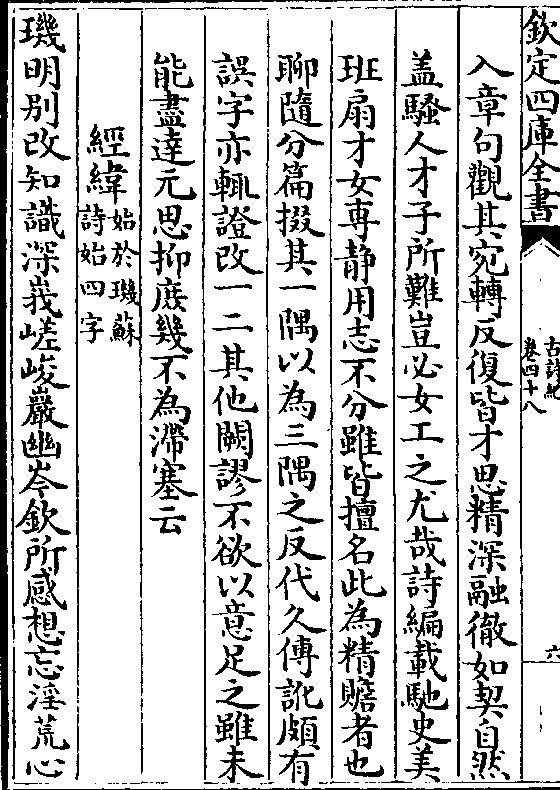 欽定四庫全書
古詩紀
卷四十八
六
入章句觀其宛轉反復皆才思精深融徹如契自然
盖騷人才子所難豈必女工之尤哉詩編載馳史美
班扇才女專静用志不分雖皆擅名此為精贍者也
聊隨分篇掇其一隅以為三隅之反代久傳訛頗有
誤字亦輒證改一二其他闕謬不欲以意足之雖未
能盡達元思抑庶幾不為滯塞云
經緯始於璣蘇
詩始四字
璣明别改知識深峩嵯峻巖幽岑欽所感想忘淫荒心